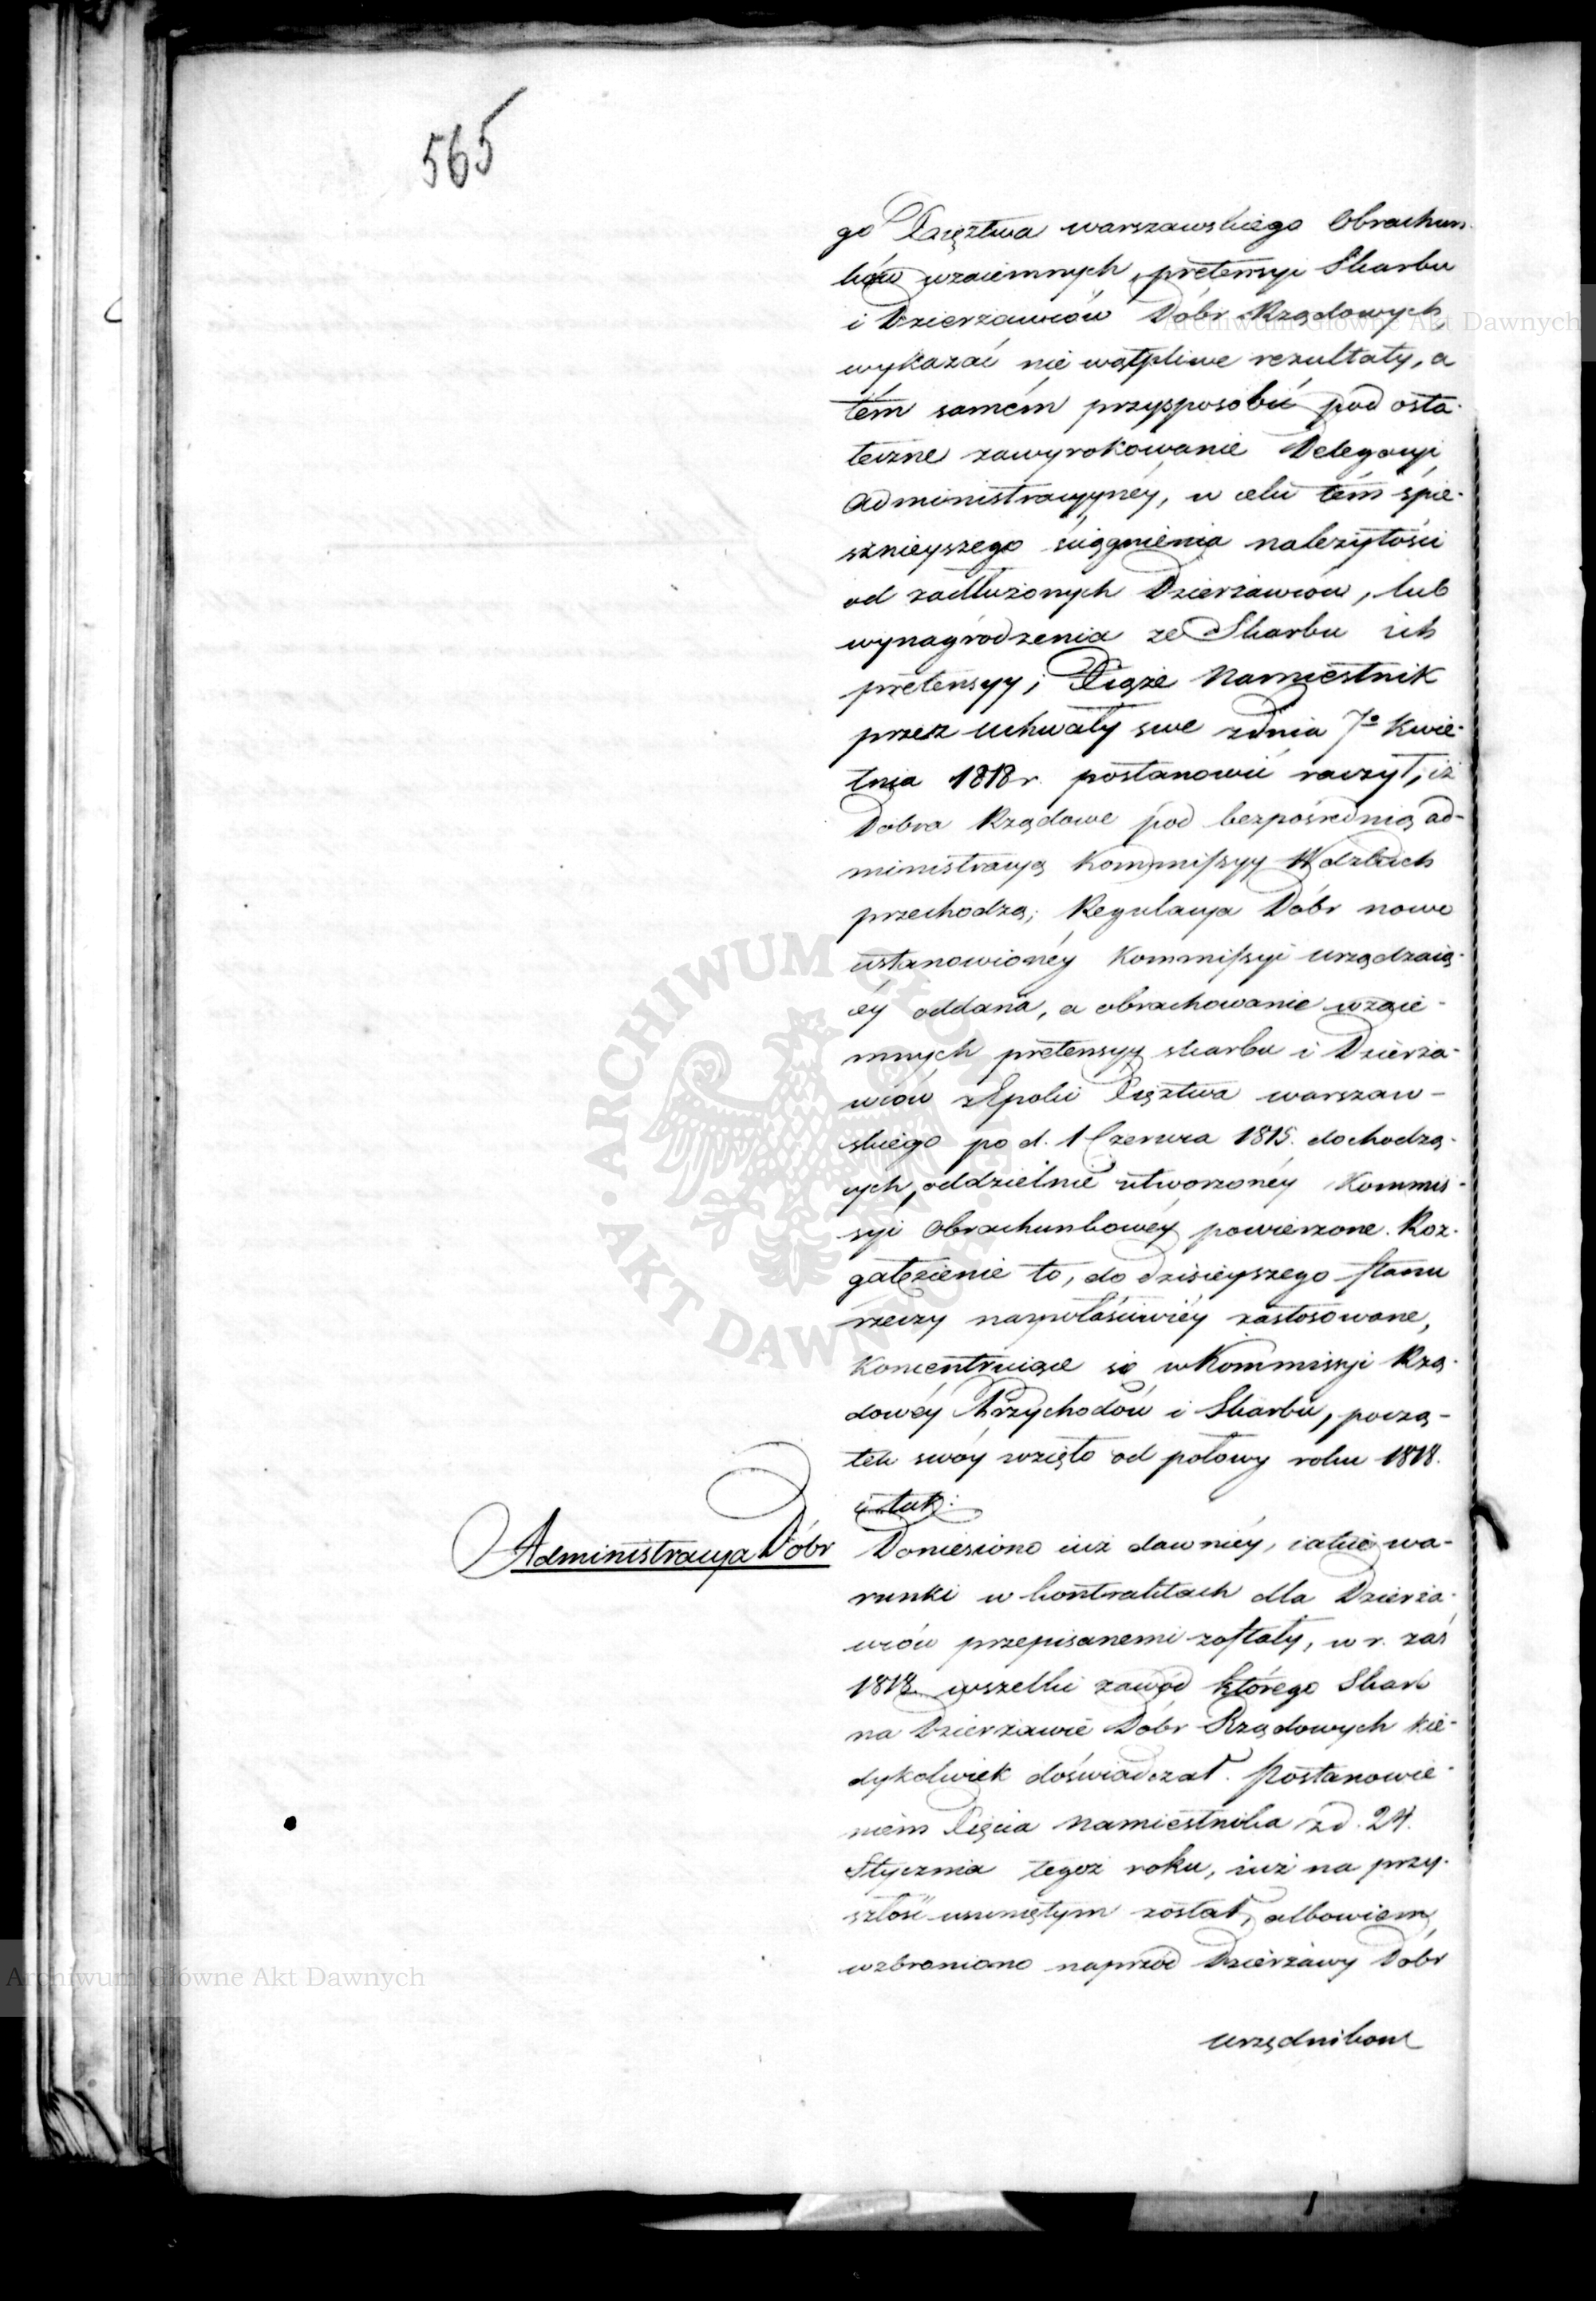 565
go Xięztwa warszawskiego Obrachun-
ków wzaiemnych, pretensyi Skarbu
i Dzierżawców Dóbr Rządowych
wykazać nie wątpliwe rezultaty, a
tém samém przysposobić pod osta-
teczne zawyrokowanie Delegacyi
administracyyney, w celu tém śpie-
sznieyszego ściągnienia należytości
od zadłużonych Dzierżawców, lub
wynagrodzenia ze Skarbu ich
pretensyy; Xiąże Namiestnik
przez uchwały swe z dnia 7º Kwie-
tnia 1818 r. postanowić raczył, iż
Dobra Rządowe pod bezpośrednią ad-
ministracyą Kommissyy Wdztwach
przechodzą; Regulacya Dóbr nowo
ustanowionéy Kommissyi urządzaią-
céy oddana, a obrachowanie wzaie-
mnych pretensyy skarbu i Dzierża-
wców z Epoki Xięztwa warszaw-
skiego po d. 1 Czerwca 1815. dochodzą-
cych, oddzielnie utworzonéy Kommis-
syi Obrachunkowéy powierzone. Roz-
gałęzienie to, do dzisieyszego stanu
rzeczy naywłaściwiéy zastosowane,
Koncentruiące się w Kommissyi Rzą-
dowéy Przychodów i Skarbu, począ-
tek swóy wzięło od połowy roku 1818.
i tak:
Administracya Dóbr
Doniesiono iuż dawniéy, iakie wa-
runki w kontraktach dla Dzierża-
wców przepisanemi zostały, w r. zaś
1818 wszelki zawód którego Skarb
na Dzierżawie Dóbr Rządowych kie-
dykolwiek doświadczał. Postanowie-
niem Xięcia Namiestnika z d. 24.
Stycznia tegoż roku, iuż na przy-
szłość usuniętym został, albowiem
wzbroniono naprzód Dzierżawy Dóbr
urzędnikom
Archiwum Główne Akt Dawnych
Archiwum Główne Akt Dawnych
ARCHIWUM GŁÓWNE AKT DAWNYCH